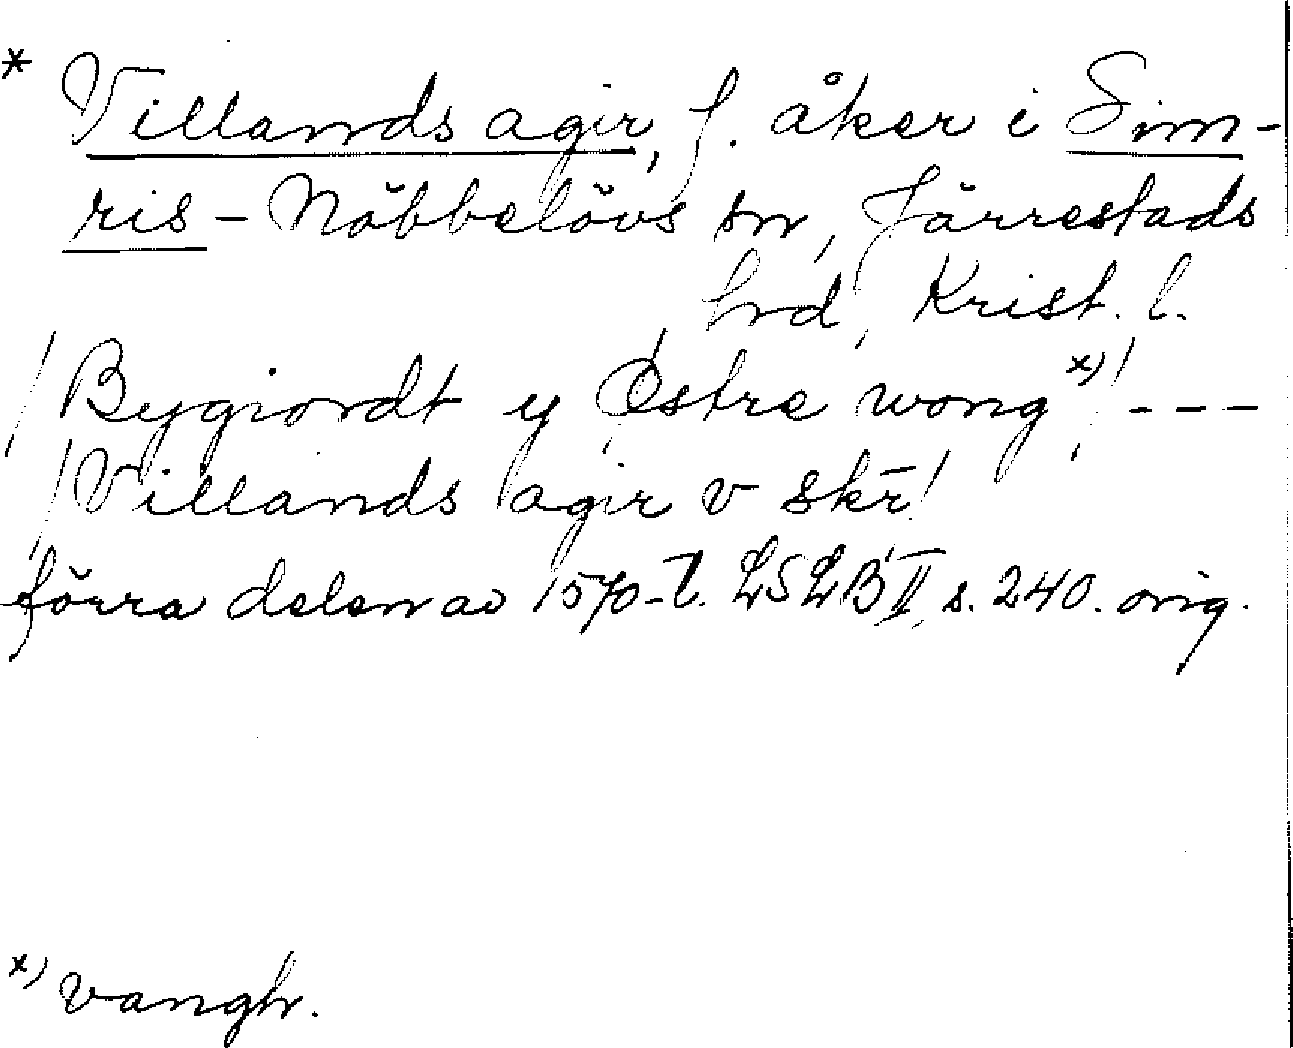 * Villands agir, f. åker i Sim-
ris - Nöbbelövs sn, Järrestads
hrd, Krist. l.
/Bygiordt y Östre wong x)/ ---
/Villands agir v skr̄/
förra delen av 1570-t. LSLB II, s. 240. orig.
x) vangh.